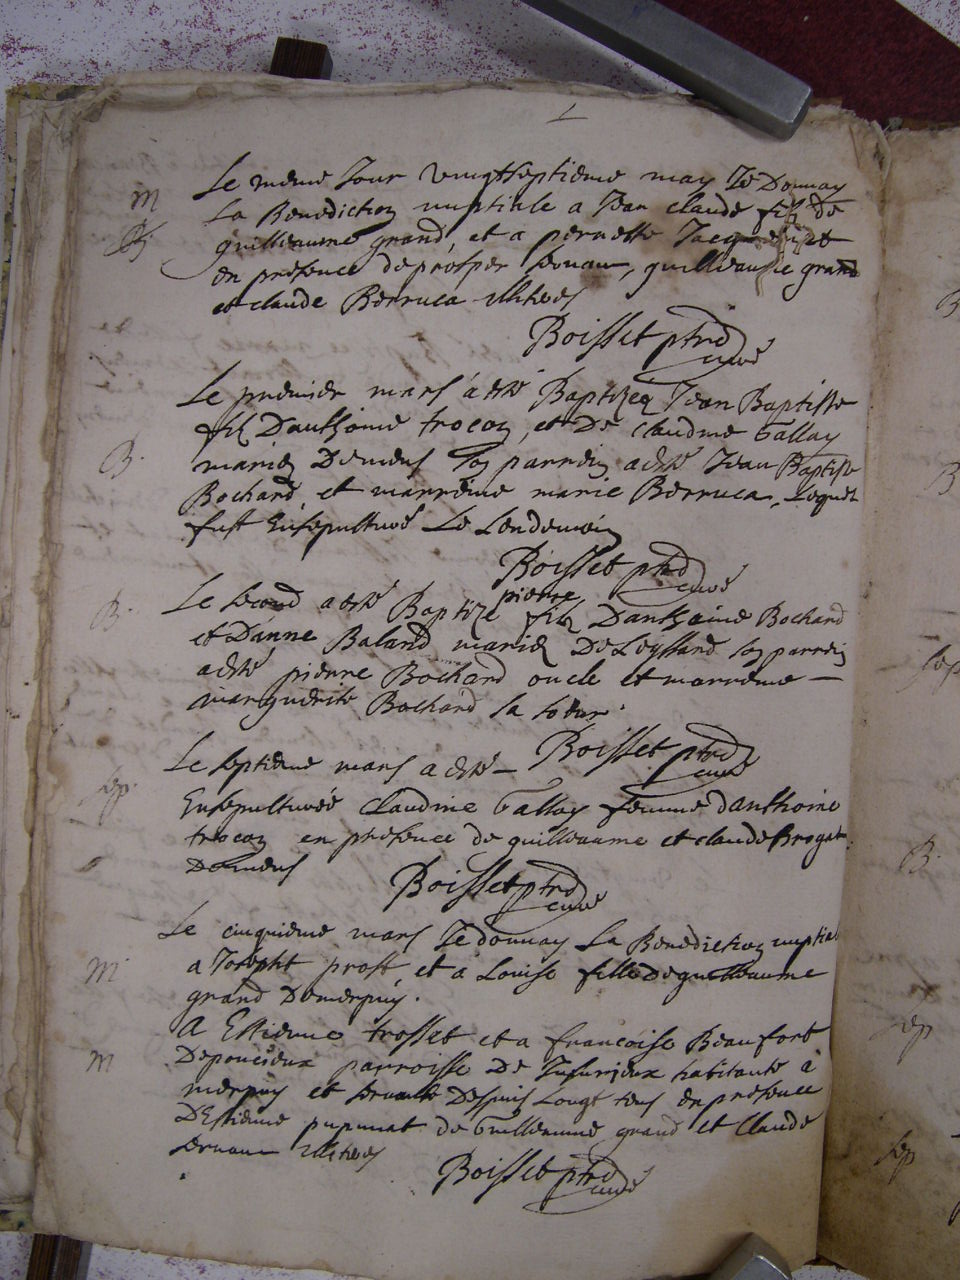 Le meme Jour vingtseptieme may Je Donnay
m
La Benediction nuptiale a Jean Claude filz de
B
guilleaume grand, et a pernette
en presence de prosper servan, guilleaume grand
et claude Berruca illiteres
Boisset ptre
curé
Le premier mars a esté Baptizez Jean Baptiste
fils Danthoine trocon, et De claudine Gallay
B.
mariez Demeus son parrein a esté Jean Baptiste
Bochard et marreine marie Berruca, Lequel
fust Ensepulturé Le Lendemain
Boisset ptre
curé
B.
Le second a esté Baptizé pierre filz Danthoine Bochard
et Danne Baland mariez De Leyssard son parrein
a esté pierre Bochard oncle et marreine
marguerite Bochard sa soeur
Boisset ptre
curé
Le septieme mars a esté
sep.
Ensepulturée Claudine Gallay femme danthoine
trocon en presence de guilleaume et claude Brogat
Demeus
Boisset ptre
curé
Le cinquieme mars Je donnay La Benediction nuptial
m
a Joseph prost et a Louise fille De guilleaume
grand Demerpuis.
A Estienne trosset et a francoise Beaufort
m
De poncieux parroisse De Jusurieux habitante a
merpuis et servante Despuis Longt tens en presence
DEstienne pupunat de Guilleaume grand et Claude
servan illiteres
Boisset ptre
curé
B
B
sep
B.
sep
sep